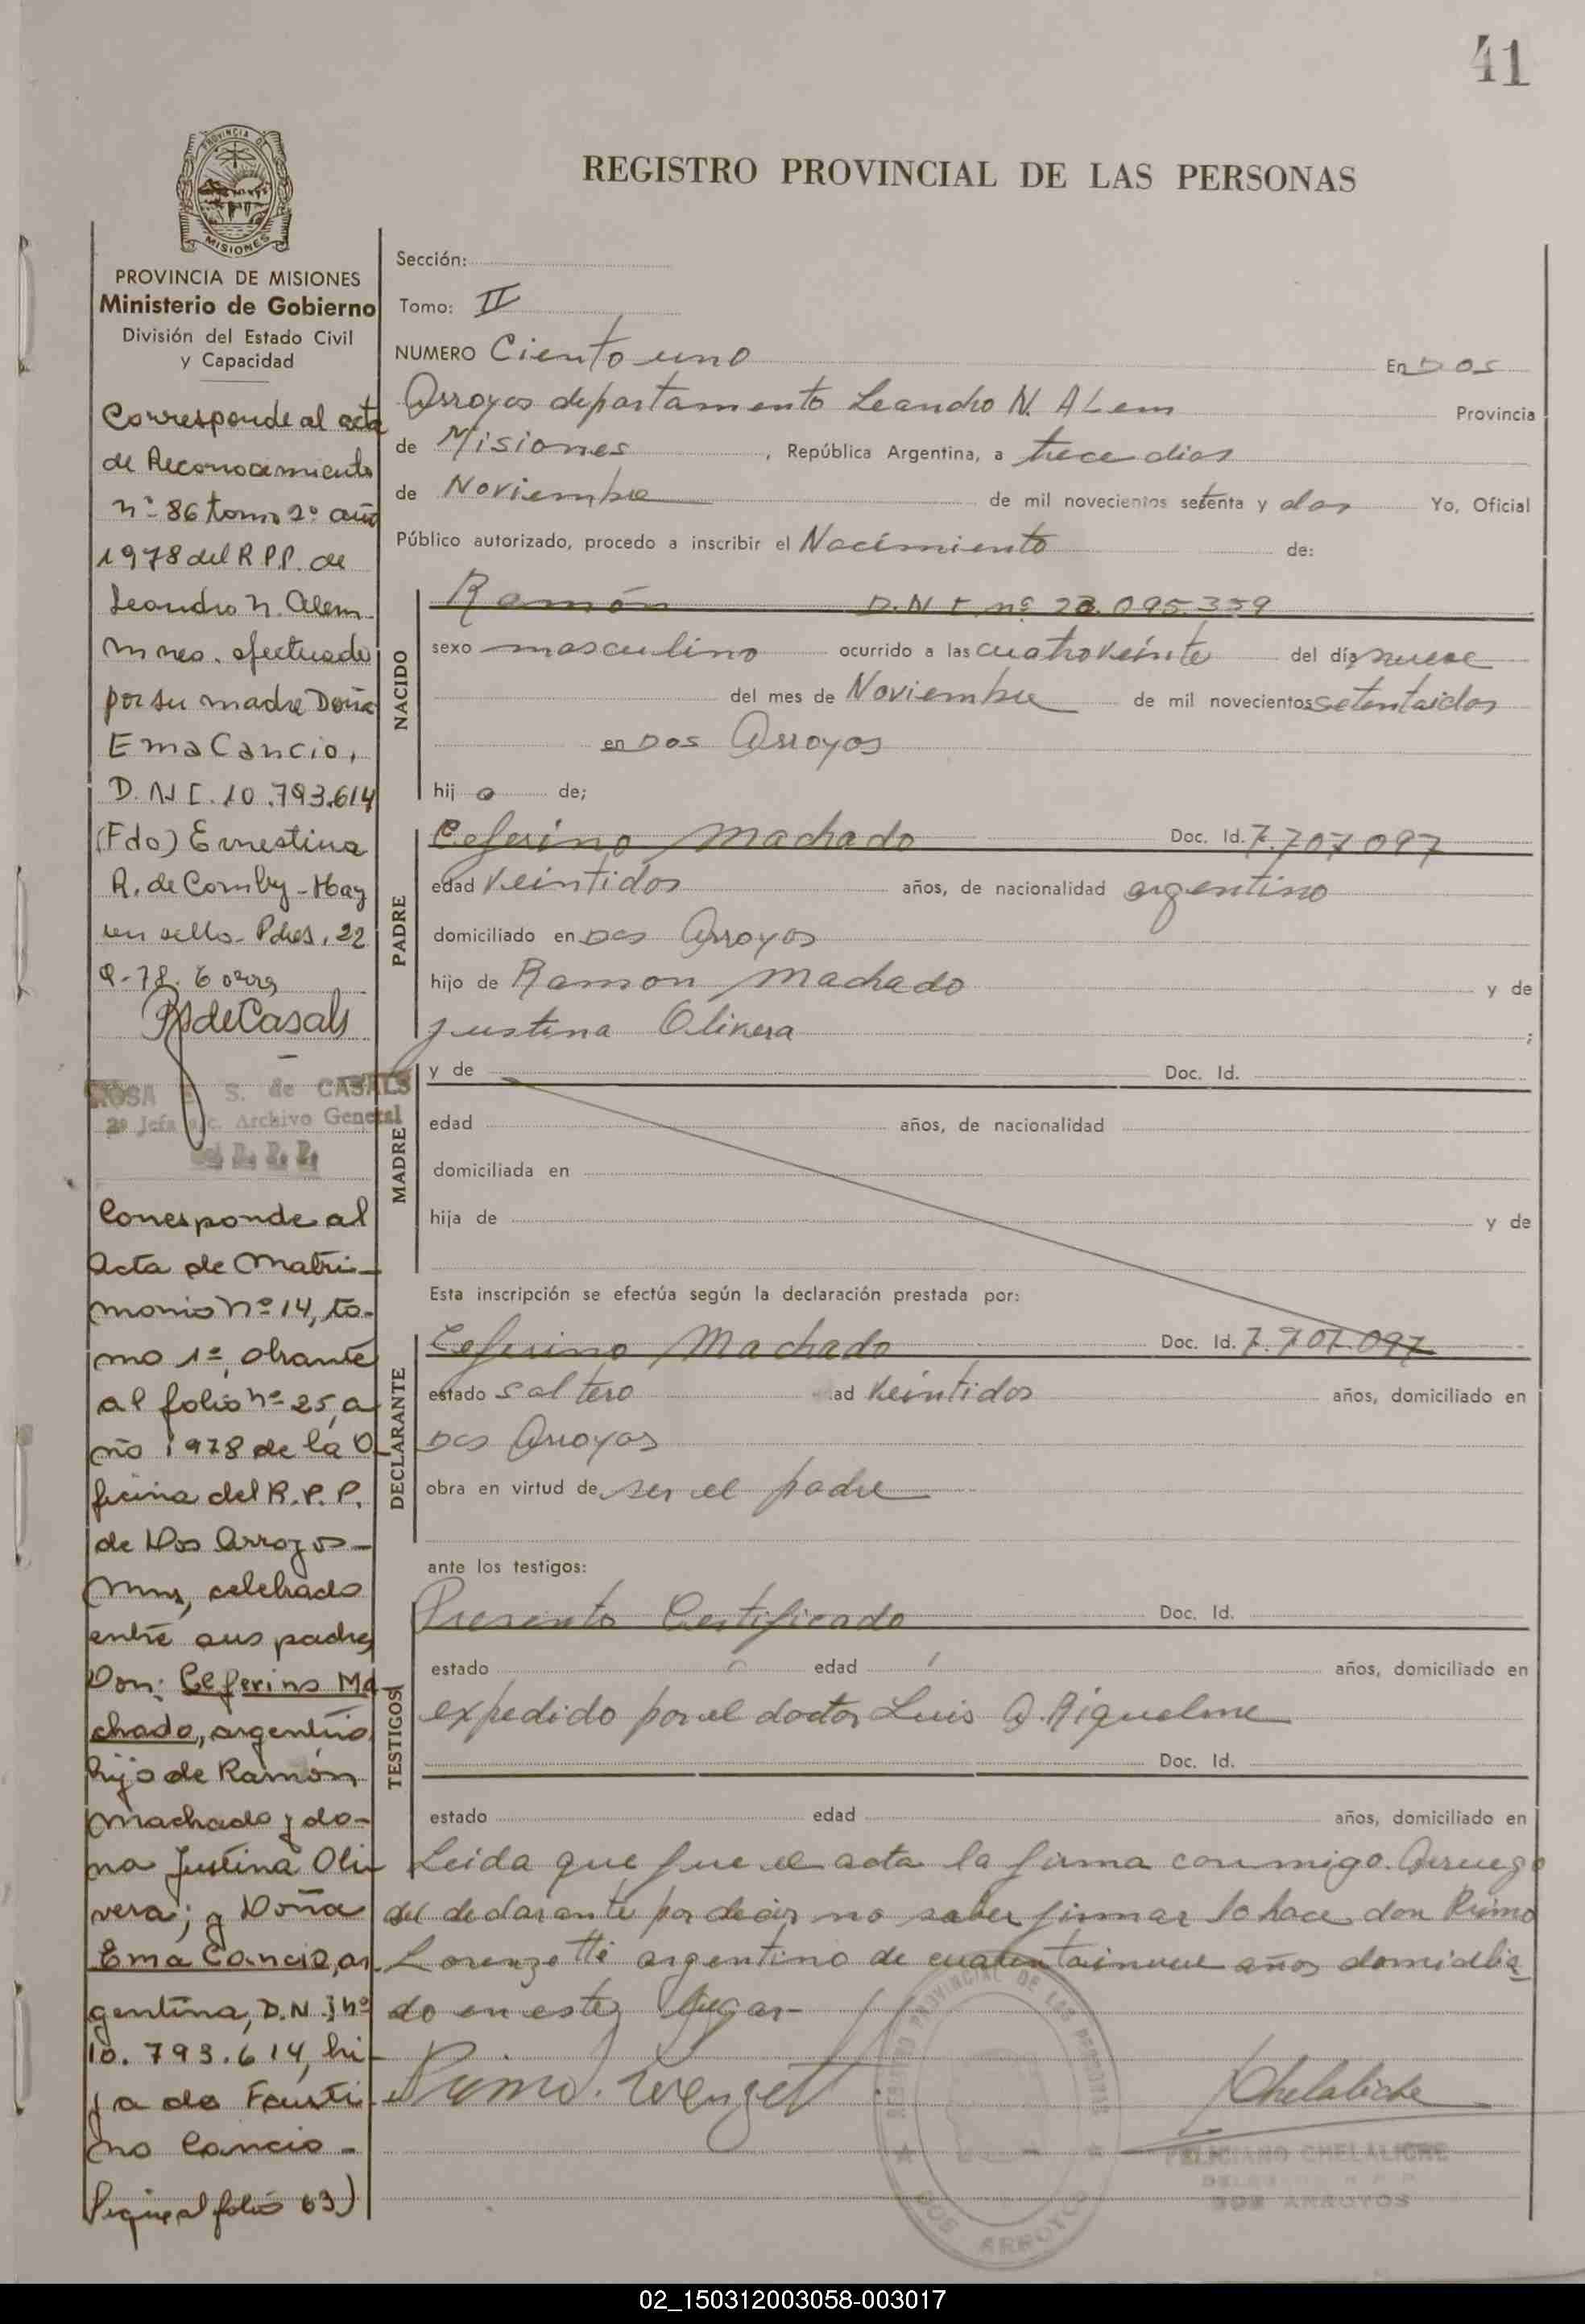 41
PROVINCIA DE
MISIONES
REGISTRO PROVINCIAL DE LAS PERSONAS
PROVINCIA DE MISIONES
Ministerio de Gobierno
División del Estado Civil
y Capacidad
Corresponde al acta
de Reconocimiento
nº 86 tomo 2º año
1978 del R.P.P. de
Leandro N. Alem
Mnes. efectuado
por su madre Doña
Ema Cancio,
D.N.I. 10.793.614
(Fdo) Ernestina
R. de Comby - Hay
un sello - Pdas, 22
78.
RSdeCasals
ROSA S. de CASALS
2º Jefa Archivo General
R. P. P.
Corresponde al
Acta de Matri-
monio nº 14, to-
mo 1º, obrante
al folio nº 25, a
ño 1978 de la O
ficina del R.P.P.
de Dos Arroyos -
Mns, celebrado
entre sus padres
Don: Ceferino Ma
chado, argentino
hijo de Ramón
Machado y do-
ña Justina Oli
vera; y Doña
Ema Cancio, ar
gentina, D.N.I nº
10.793.614, hi
ja de Fausti
no Cancio -
Sigue al folio 63)
Sección:
Tomo: II
NUMERO Ciento uno En Dos
Arroyos departamento Leandro N. Alem Provincia
de Misiones, República Argentina, a trece dias
de Noviembre de mil novecientos setenta y dos Yo, Oficial
Público autorizado, procedo a inscribir el Nacimiento de:
NACIDO
Ramón D.N.I. nº 23.095.359
sexo masculino ocurrido a las cuatro veinte del día nueve
del mes de Noviembre de mil novecientos setentaidos
en Dos Arroyos
hijo de;
PADRE
Ceferino Machado Doc. Id. 7.707.097
edad veintidos años, de nacionalidad argentino
domiciliado en Dos Arroyos
hijo de Ramon Machado y de
Justina Olivera ;
MADRE
y de Doc. Id.
edad años, de nacionalidad
domiciliada en
hija de y de
Esta inscripción se efectúa según la declaración prestada por:
DECLARANTE
Ceferino Machado Doc. Id. 7.707.097
estado soltero ad veintidos años, domiciliado en
Dos Arroyos
obra en virtud de ser el padre
ante los testigos:
TESTIGOS
Presento Certificado Doc. Id.
estado edad años, domiciliado en
expedido por el doctor Luis A. Riquelme
Doc. Id.
estado edad años, domiciliado en
Leida que fue el acta la firma conmigo. A ruego
del declarante por decir no saber firmar lo hace don Primo
Lorenzetti argentino de cuarentainueve años domicilia
do en este lugar -
Primo. Lorenzetti
Chelaliche
REGISTRO PROVINCIAL DE LAS PERSONAS
DOS ARROYOS
FELICIANO CHELALICHE
DOS ARROYOS
02_150312003058-003017